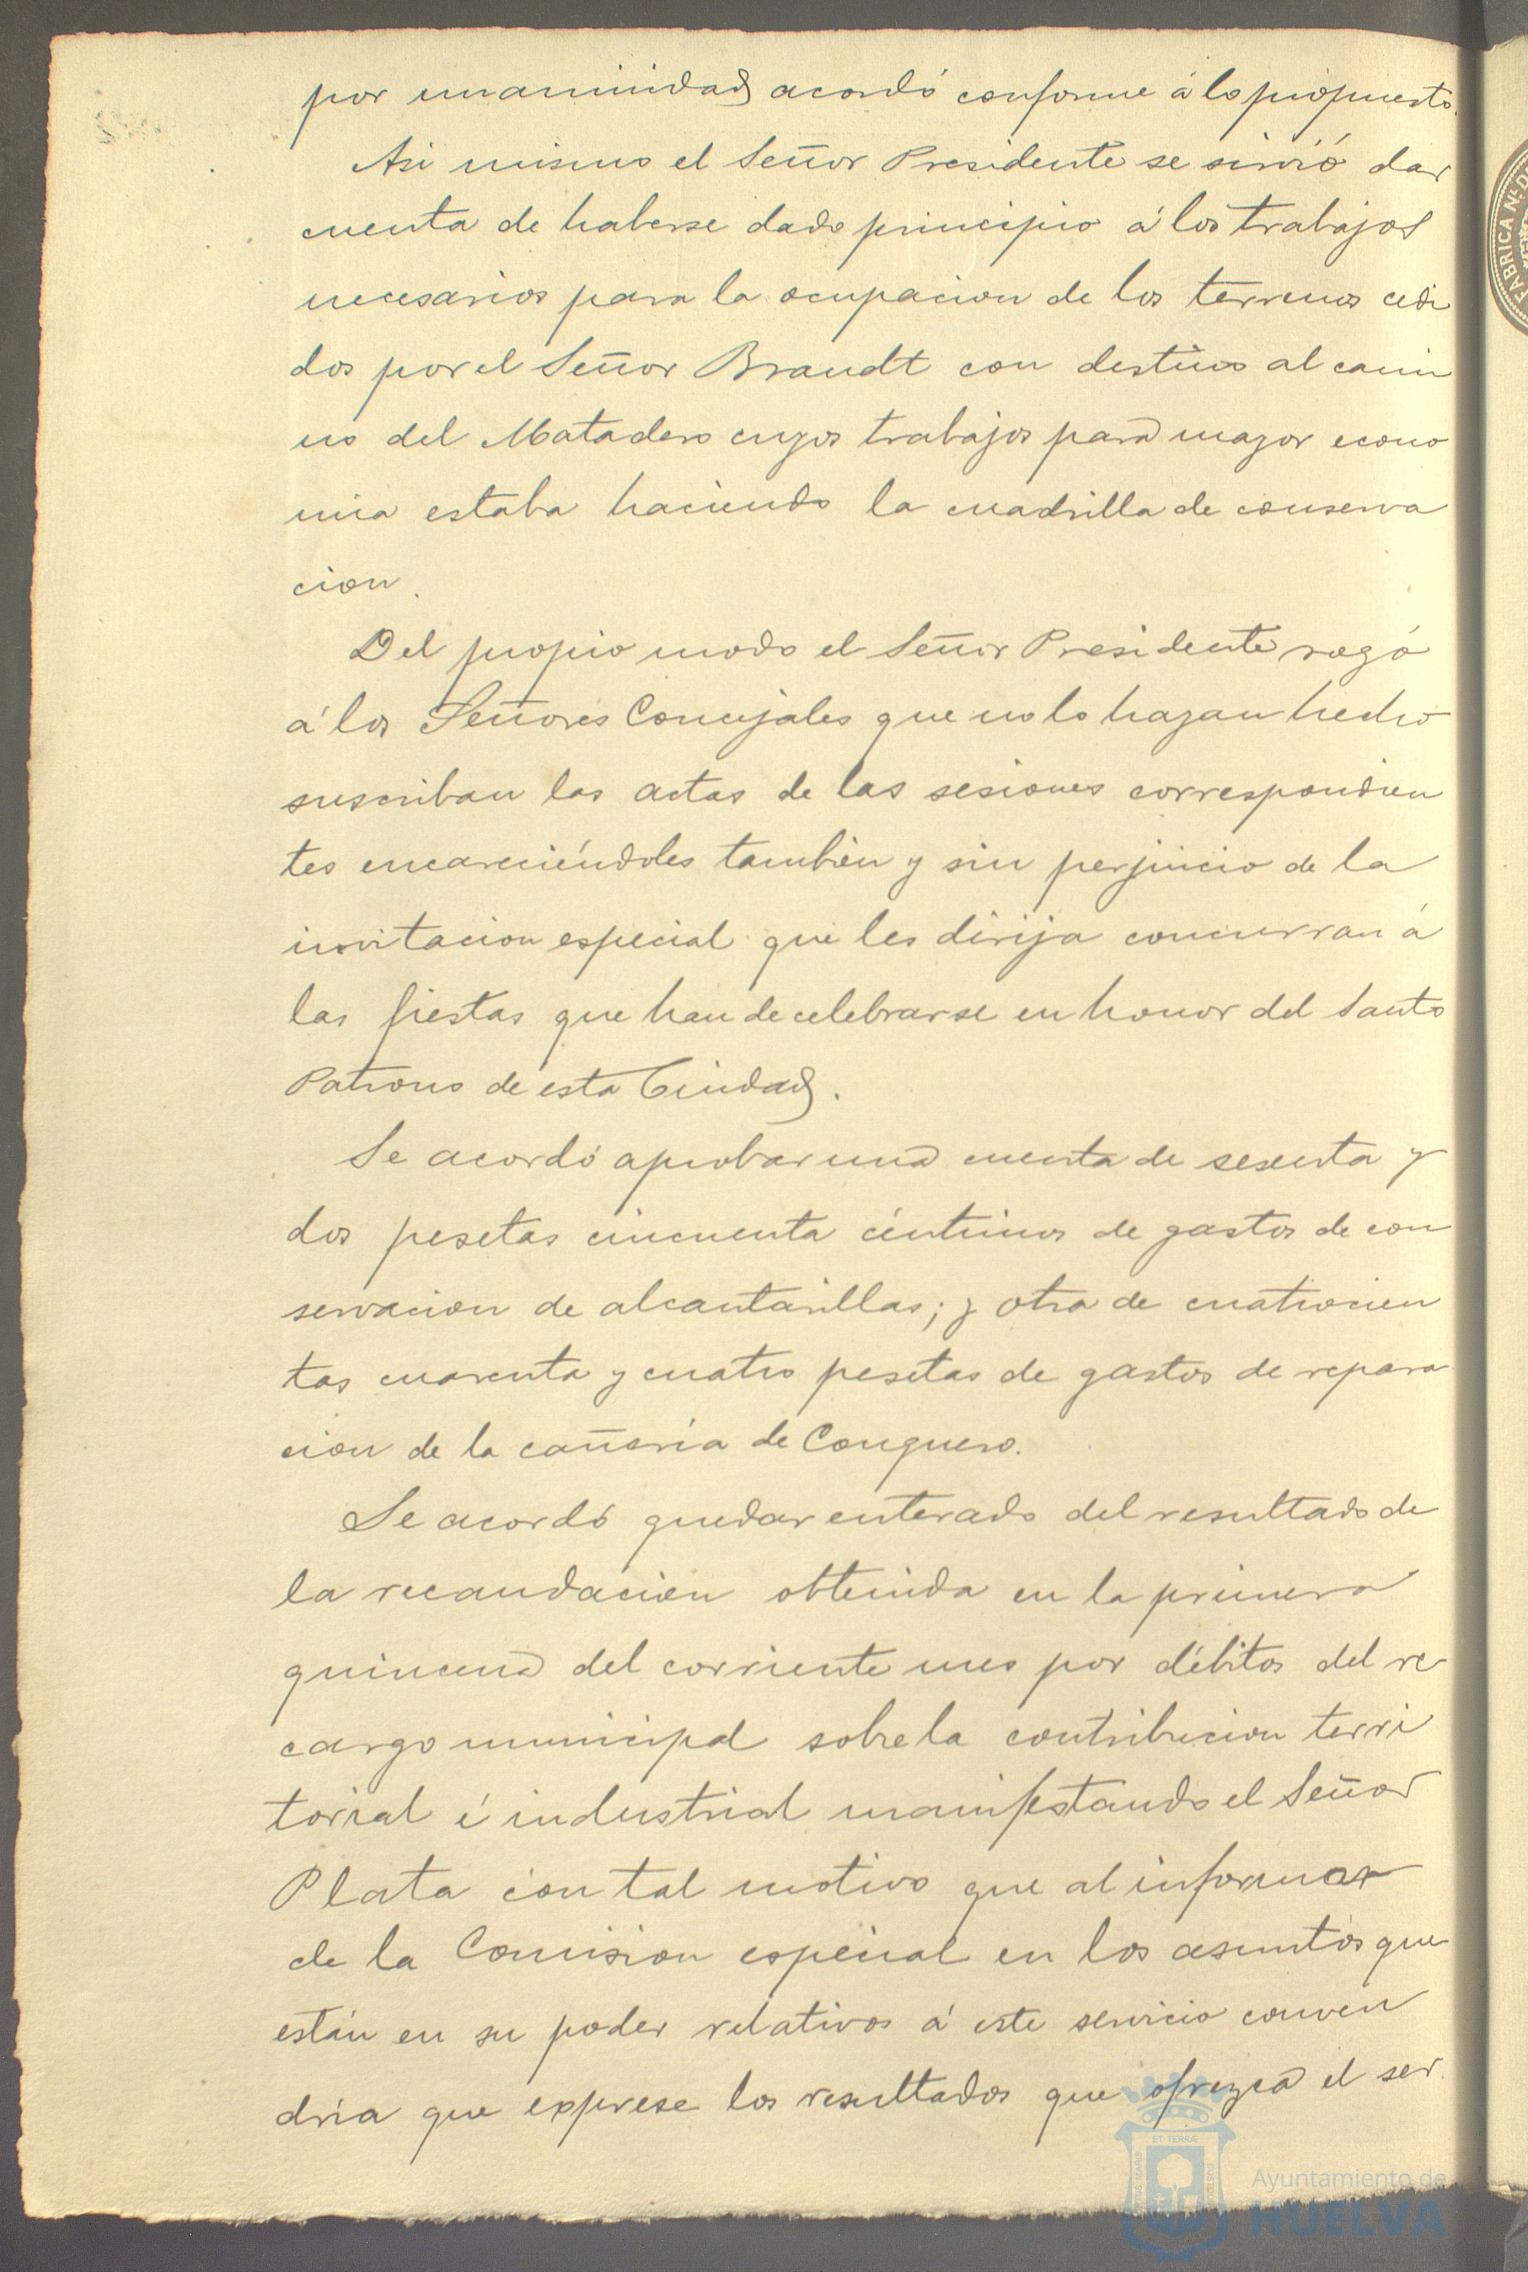 por unanimidad acordó conforme á lo propuesto.
Asi mismo el Señor Presidente se sirvió dar
cuenta de haberse dado principio á los trabajos
necesarios para la ocupacion de los terrenos cedi
dos por el Señor Brandt con destino al cami
no del Matadero cuyos trabajos para mayor econo
mia estaba haciendo la cuadrilla de conserva
cion.
Del propio modo el Señor Presidente rogó
á los Señores Concejales que no lo hayan hecho
suscriban las actas de las sesiones correspondien
tes encareciéndoles tambien y sin perjuicio de la
invitacion especial que les dirija concurran á
las fiestas que han de celebrarse en honor del Santo
Patrono de esta Ciudad.
Se acordó aprobar una cuenta de sesenta y
dos pesetas cincuenta céntimos de gastos de con
servacion de alcantarillas; y otra de cuatrocien
tas cuarenta y cuatro pesetas de gastos de repara
cion de la cañería de Conquero.
Se acordó quedar enterado del resultado de
la recaudacion obtenida en la primera
quincena del corriente mes por débitos del re
cargo municipal sobre la contribucion terri
torial é industrial manifestando el Señor
Plata con tal motivo que al informar
de la Comision especial en los asuntos que
están en su poder relativos á este servicio conven
dria que exprese los resultados que ofrezca el ser
FABRICA NL. D
ET TERRÆ
Ayuntamiento de
HUELVA